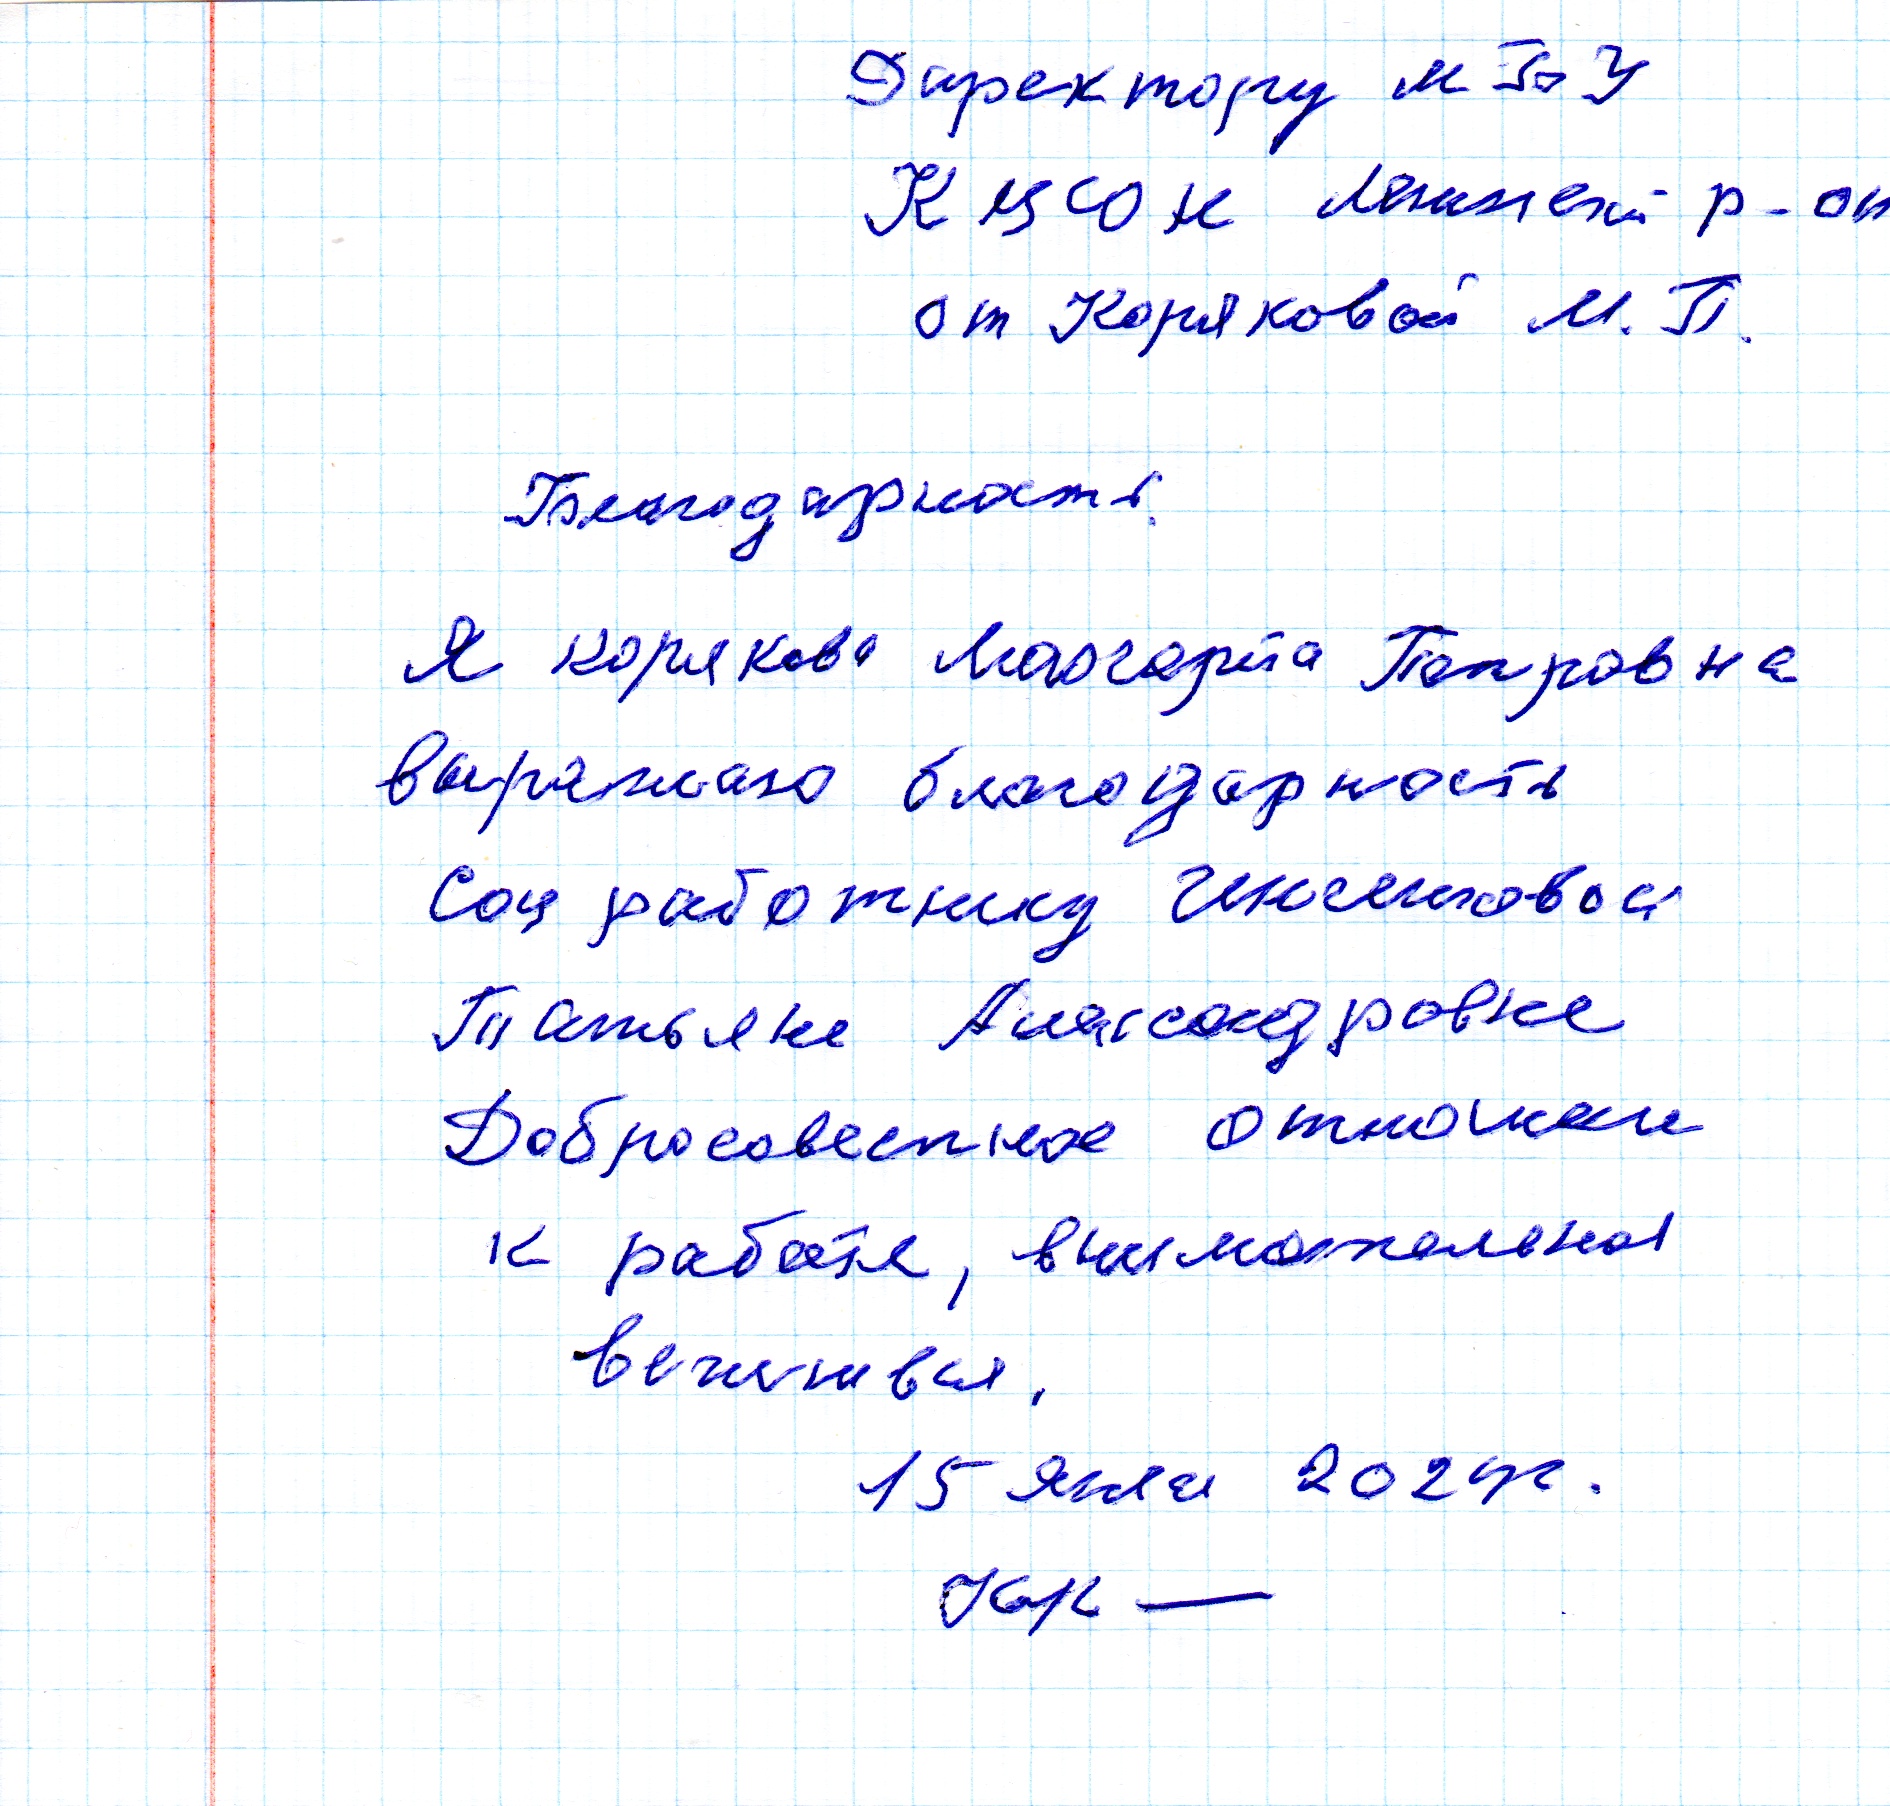 Директору МБУ
КЦСОН Ленинский р-он
от Коряковой М.П.
Благодарность.
Я корякова Маргарита Петровна
выражаю благодарность
Соц работнику
Татьяне Александровне
Добросовестное отношени
к работе, внимательная
вежливая.
15 2024г.